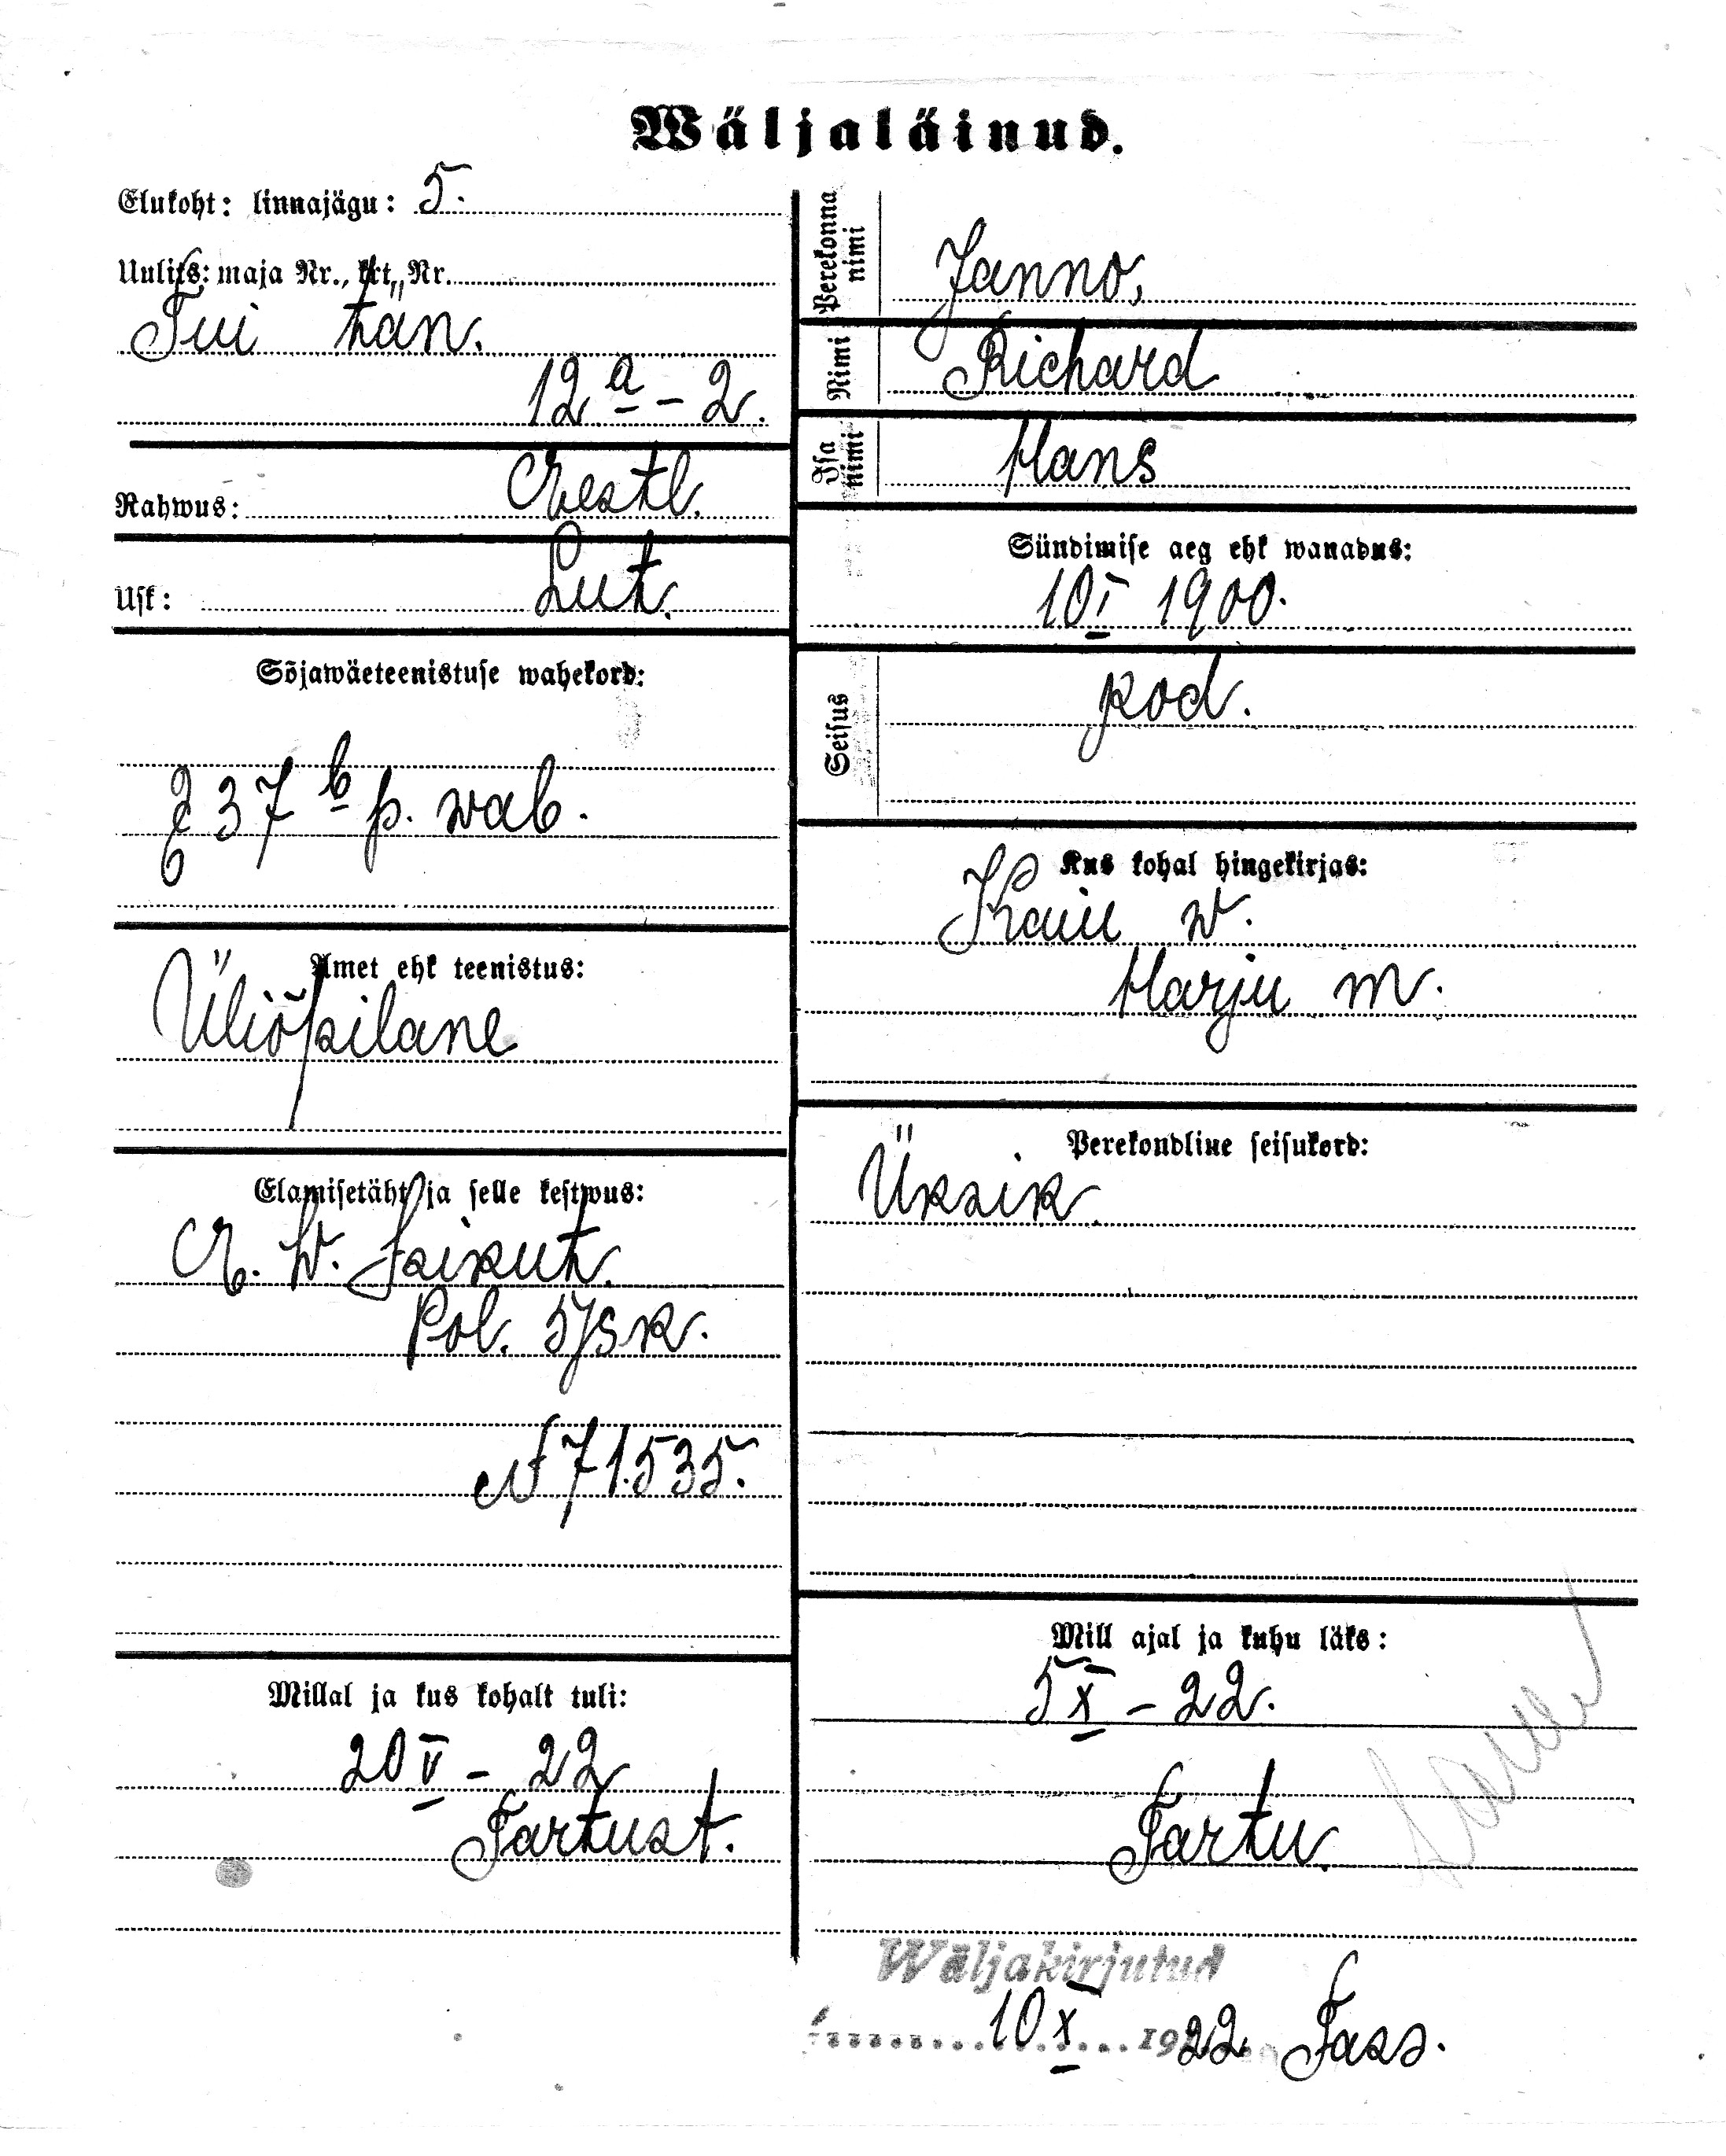 Wäljaläinud.
Elukoht: linnajägu: 5.
Uulits: maja Nr., krt. Nr.
Tui tän.
12 a - 2.
Rahwus: Eestl.
Usk: Lut.
Sõjawäeteenistuse wahekord:
§ 37 b p. wab.
Amet ehk teenistus:
Üliõpilane
Elamisetäht ja selle kestwus:
E. W. Isikut.
Pol. 5 jsk.
N 71.535.
Millal ja kus kohalt tuli:
20 V - 22
Tartust.
Perekonna nimi
Janno,
Nimi
Richard
Isa nimi
Hans
Sündimise aeg ehk wanadus:
10 I 1900.
Seisus
kod.
Kus kohal hingekirjas:
w.
Harju m.
Perekondline seisukord:
Üksik
Mill ajal ja kuhu läks:
5 X - 22.
Tartu.
Wäljakirjutud
10 X 1922. Tass.